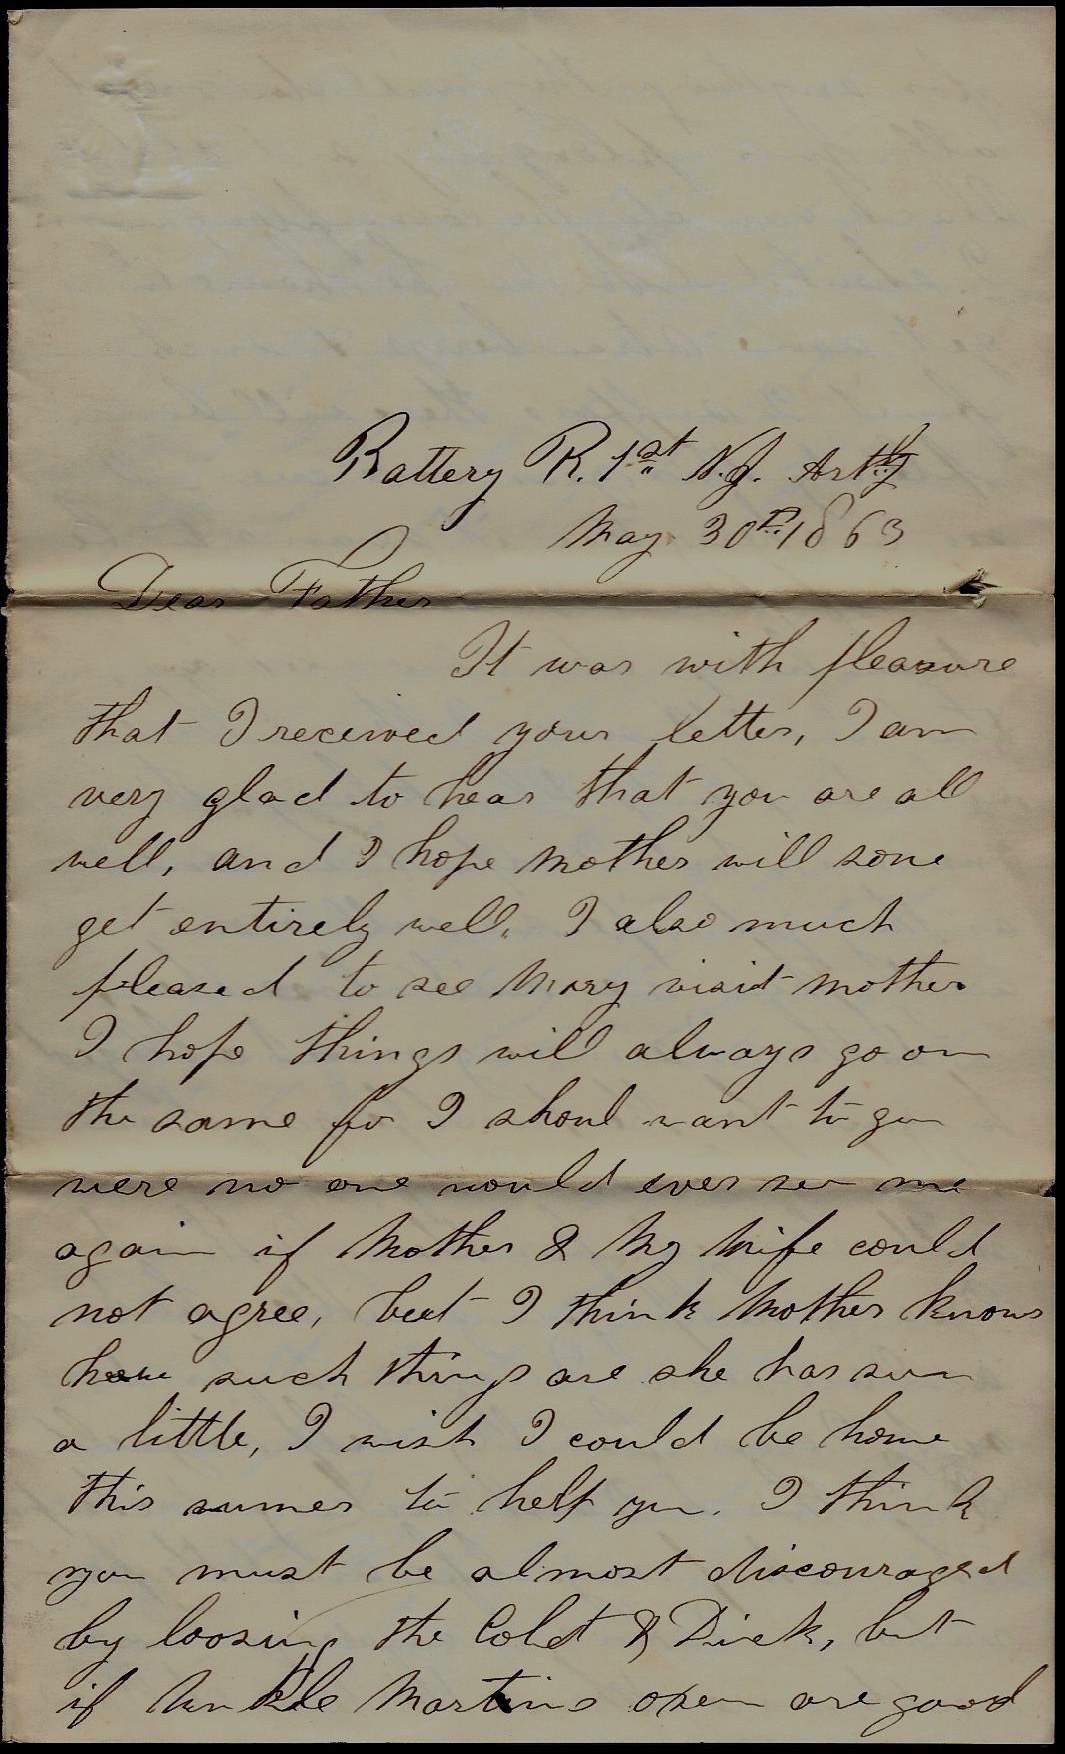 Battery B. 1st N.J. Arty
May 30th 1863
Dear Father
It was with pleasure
that I received your letter, I am
very glad to hear that you are all
well, and I hope Mother will sone
get entirely well. I also much
pleased to see Mary visit mother.
I hope things will always go on
the same for I shoul want to go
were no one would ever see me
again if Mother & My Wife could
not agree, but I think Mother knows
how such things are she has seen
a little, I wish I could be home
this sumer to help you. I think
you must be almost discouraged
by loosing the Colt & Dick, but
if Unkle Martins oxen are good